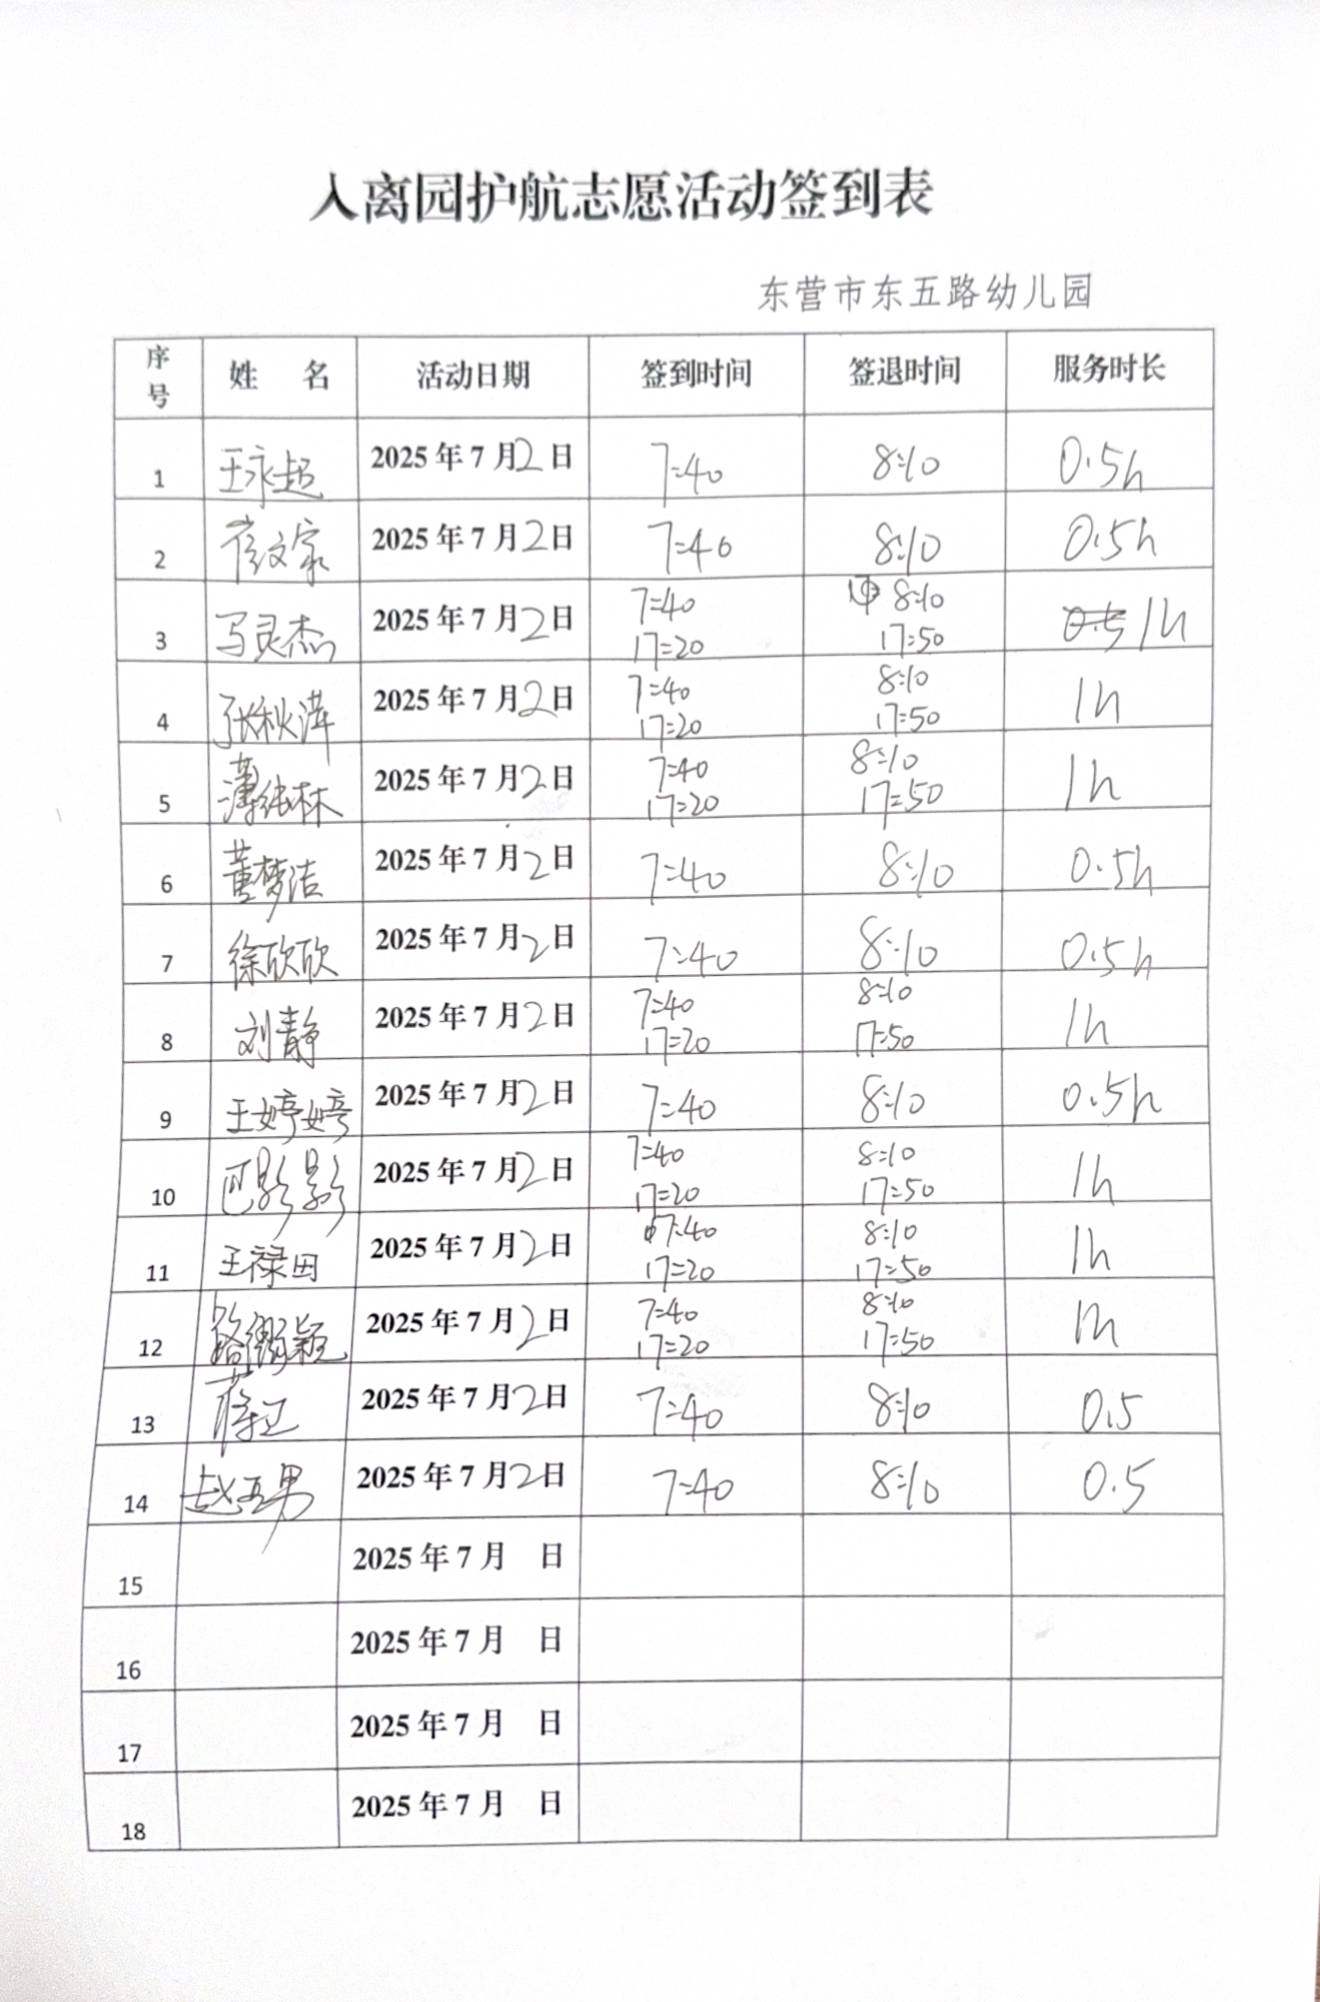 入离园护航志愿活动签到表
东营市东五路幼儿园
序号 姓 名 活动日期 签到时间 签退时间 服务时长
1 王永超 2025年7月2日 7:40 8:10 0.5h
2 崔文家 2025年7月2日 7:40 8:10 0.5h
3 马灵杰 2025年7月2日 7:40 17:20 8:10 17:50 1h
4 张秋萍 2025年7月2日 7:40 17:20 8:10 17:50 1h
5 薄纯林 2025年7月2日 7:40 17:20 8:10 17:50 1h
6 董梦洁 2025年7月2日 7:40 8:10 0.5h
7 徐欣欣 2025年7月2日 7:40 8:10 0.5h
8 刘静 2025年7月2日 7:40 17:20 8:10 17:50 1h
9 王婷婷 2025年7月2日 7:40 8:10 0.5h
10 巴影影 2025年7月2日 7:40 17:20 8:10 17:50 1h
11 王禄田 2025年7月2日 7:40 17:20 8:10 17:50 1h
12 2025年7月2日 7:40 17:20 8:10 17:50 1h
13 2025年7月2日 7:40 8:10 0.5
14 2025年7月2日 7:40 8:10 0.5
15 2025年7月 日
16 2025年7月 日
17 2025年7月 日
18 2025年7月 日